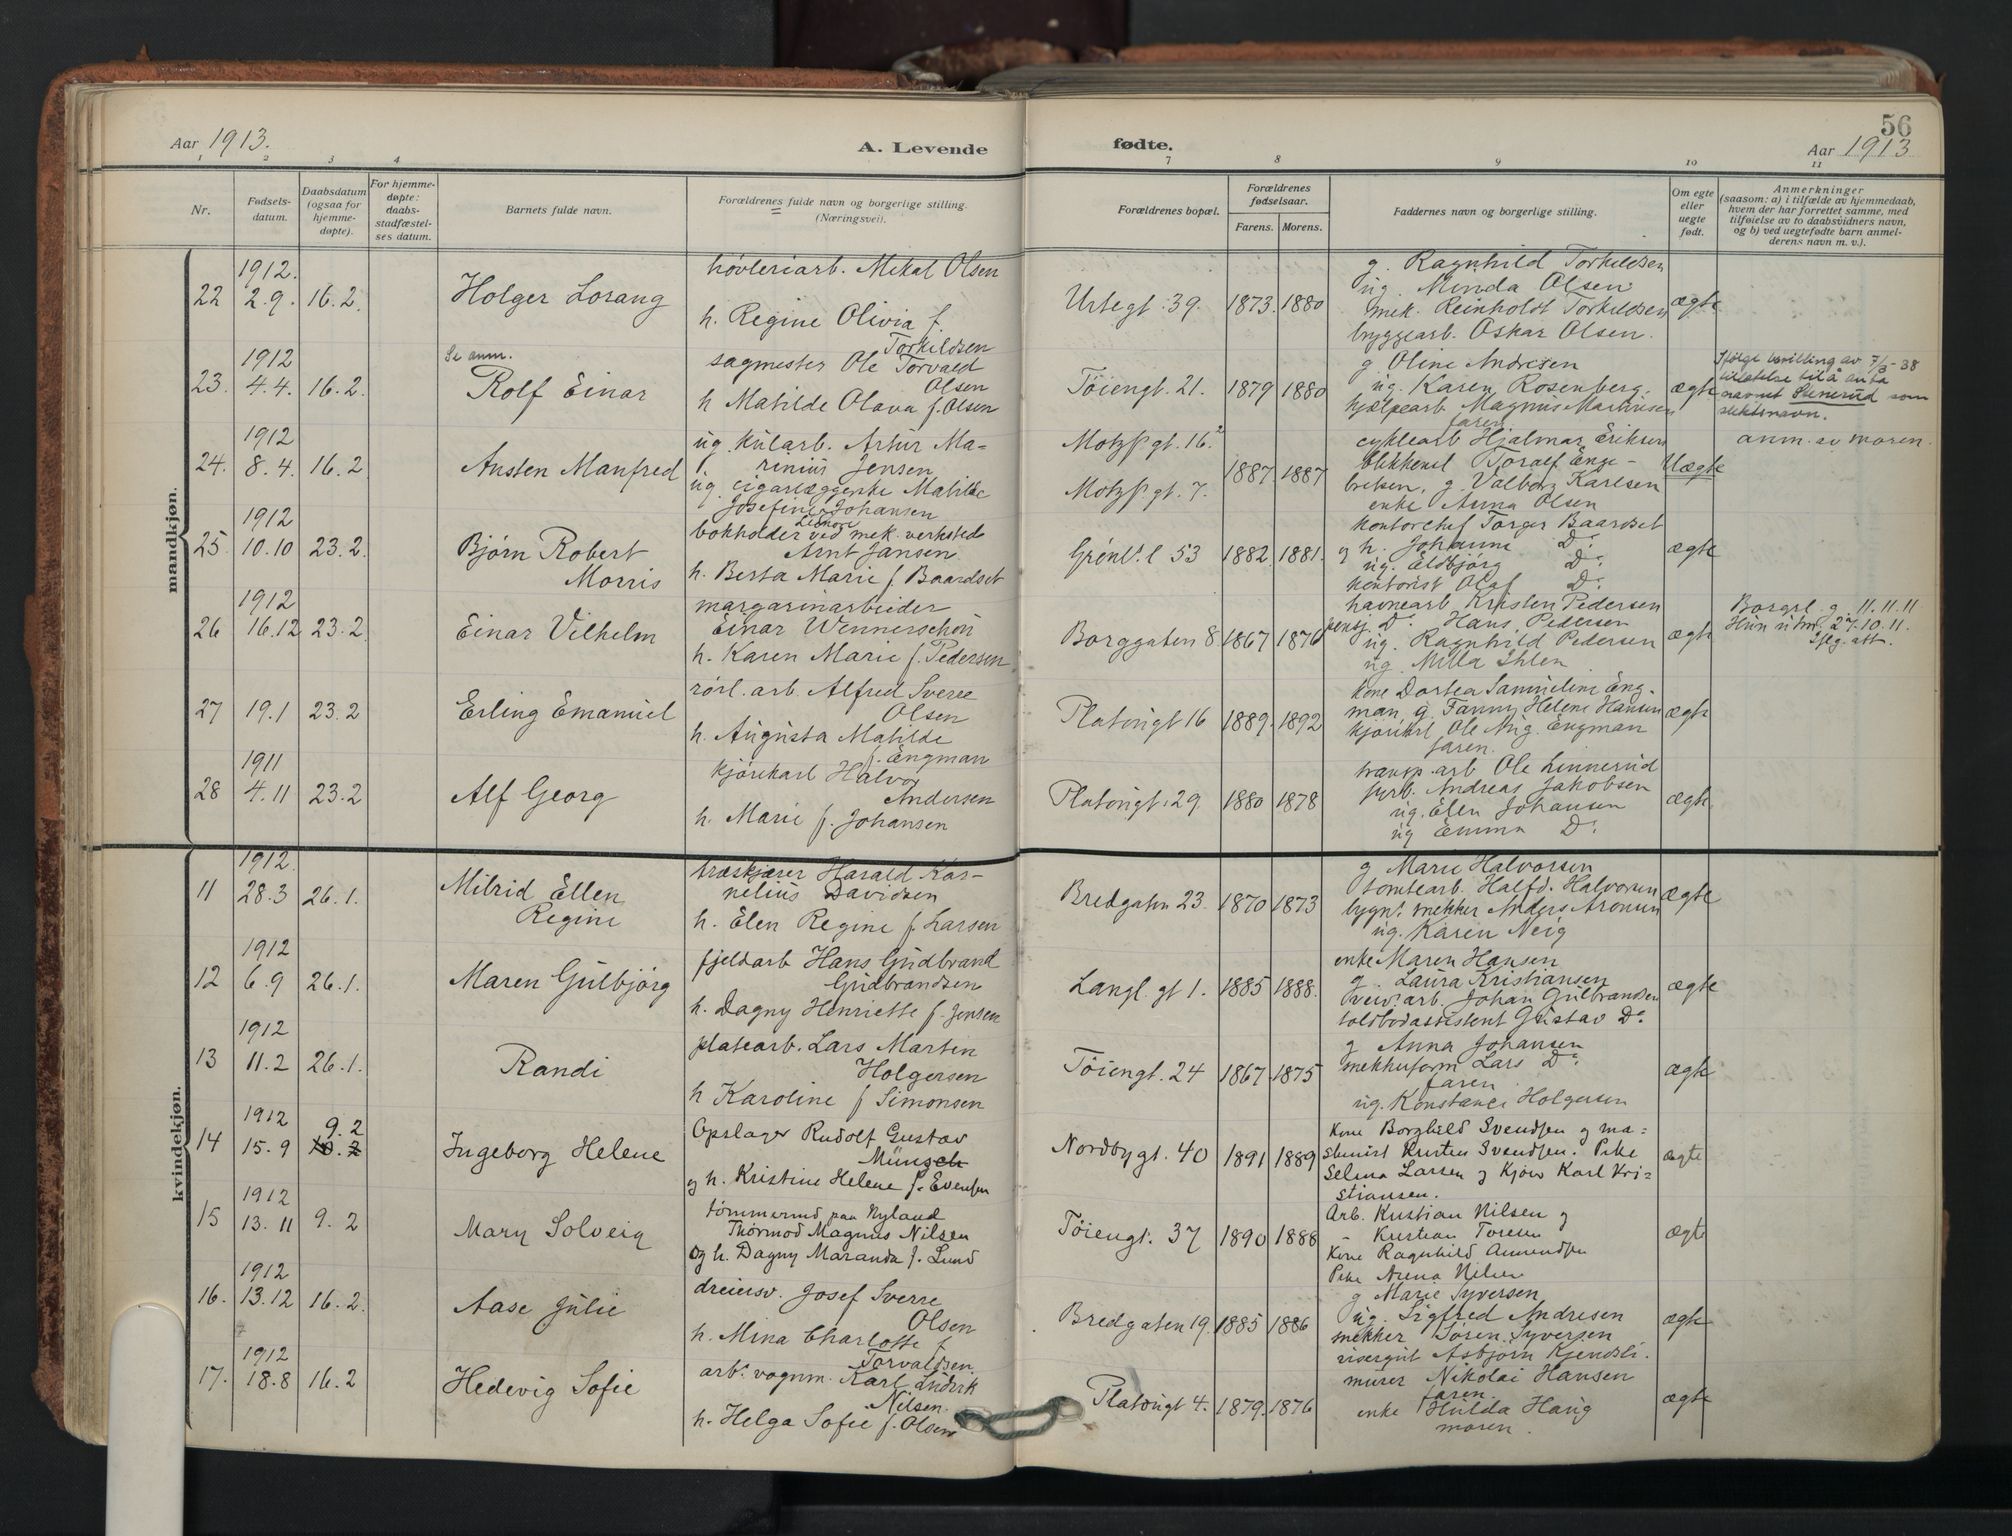 56
Aar 1913. A. Levende fødte. Aar 1913
1 2 3 4 7 8 9 10 11
Nr.
Fødsels-
datum.
Daabsdatum
(ogsaa for
hjemme-
døpte).
For hjemme-
døpte:
daabs-
stadfæstel-
ses datum.
Barnets fulde navn.
Forældrenes fulde navn og borgerlige stilling.
(Næringsvei).
Forældrenes bopæl.
Forældrenes
fødselsaar.
Farens. Morens.
Faddernes navn og borgerlige stilling.
Om egte
eller
uegte
født.
Anmerkninger
(saasom: a) i tilfælde av hjemmedaab,
hvem der har forrettet samme, med
tilføielse av to daabsvidners navn,
og b) ved uegtefødte barn anmel-
derens navn m. v.).
mandkjøn.
22
1912.
2.9. 16.2.
Holger Lorang
høvleriarb. Mikal Olsen
h. Regine Olivia f.
Torkildsen
Urtegt. 39. 1873. 1880
g. Ragnhild Torkildsen
ug. Minda Olsen
mek. Reinholdt Torkildsen
byggearb. Oskar Olsen.
ægte
23.
1912
4.4. 16.2.
Se anm.
Rolf Einar
sagmester Ole Torvald
Olsen
h Matilde Olava f. Olsen
Tøiengt. 21. 1879 1880
g Oline Andresen
ug. Karen Rosenberg.
hjælpearb Magnus Martinsen
faren
ægte
Ifølge bevilling av 7/3-38
tillatelse til å anta
navnet Stenerud som
slektsnavn.
24.
1912
8.4. 16.2
Austen Manfred
ug kularb. Artur Ma-
rinius Jensen
ug. cigarlæggerske Matilde
Josefine Johansen
Motzf gt. 16.²
Motzf gt. 7.
1887. 1887
cyklearb Hjalmar Eriksen
blikkensl Toralf Enge-
bretsen, g. Valborg Karlsen
enke Anna Olsen
Uægte
anm. av moren.
25.
1912
10.10 23.2.
Bjørn Robert
Morris
bokholder ved mek. verksted
Arnt Jansen
h. Berta Marie f. Baardset
Grønl. l 53 1882. 1881.
kontorchef Torger Baardset
og h. Johanne Do:
ug. Eldbjørg Do:
kontorist Olaf Do:
ægte
26
1912
16.12 23.2.
Einar Vilhelm
margarinarbeider
Einar Wennerschou
h. Karen Marie f. Pedersen
Borggaten 8. 1867 1876
havnearb Kristen Pedersen
pensj. Do: Hans Pedersen
ug. Ragnhild Pedersen
ug. Milla Ihlen
ægte
Borgrl. g. 11.11.11
Hun utm. 27.10.11.
iflg. att.
27
19.1 23.2
Erling Emanuel
rørl. arb. Alfred Sverre
Olsen
h. Augusta Matilde
f. Engman
Platougt 16 1889. 1892
kone Dortea Samueline Eng-
man g. Fanny Helene Hansen
kjørekarl Ole Aug. Engman
faren.
ægte
28
1911
4.11 23.2
Alf Georg
kjørekarl Halvor
Andersen
h. Marie f. Johansen
Platougt. 29. 1880 1878
transp. arb Ole Linnerud
fyrb. Andreas Jakobsen
ug. Elen Johansen
ug Emma Do:
ægte.
kvindekjøn.
11
1912.
28.3 26.1.
Milrid Ellen
Regine
træskjærer Harald Kor-
nelius Davidsen
h. Elen Regine f. Larsen
Bredgaten 23. 1870 1873
g Marie Halvorsen
tomtearb. Halfd. Halvorsen
bygn. snekker Anders Aronsen
ug. Karen Neig
ægte
12
1912
6.9 26.1.
Maren Gulbjørg
fjeldarb Hans Gudbrand
Gudbrandsen
h. Dagny Henriette f. Jensen
Langl. gt 1. 1885 1888.
enke Maren Hansen
g. Laura Kristiansen
veiv. arb. Johan Gulbrandsen
toldbodassistent Gustav Do
ægte
13
1912
11.2 26.1.
Randi
platearb. Lars Martin
Holgersen
h Karoline f Simonsen
Tøiengt. 24 1867 1875
g Anna Johansen
snekkerform Lars Do:
faren
ug. Konstance Holgersen
ægte
14
1912
15.9 9.2
Ingeborg Helene
Opslager Rudolf Gustav
Münsch
og h. Kristine Helene f. Evensen
Nordbygt. 40 1891 1889
Kone Borghild Svendsen og ma=
skinist Kristen Svendsen. Pike
Selma Larsen og Kjøm Karl Kri=
stiansen.
ægte
15
1912
13.11 9.2
Mary Solveig
tømmermd paa Nyland
Thormod Magnus Nilsen
og h. Dagny Maranda f. Lund
Tøiengt. 37 1890 1888
Arb. Kristian Nilsen og
- Kristian Toresen
Kone Ragnhild Amundsen
Pike Anna Nilsen
ægte
16.
1912
13.12 16.2.
Aase Julie
dreiersv. Josef Sverre
Olsen
h. Mina Charlotte f
Torvaldsen
Bredgaten 19. 1885 1886
g Marie Syversen
ug. Sigfred Andresen
snekker Søren Syversen
visergut Asbjørn Kjendsli.
ægte
17.
1912
18.8 16.2
Hedevig Sofie
arb. vognm. Karl Ludvik
Nilsen.
h. Helga Sofie f. Olsen
Platougt 4. 1879. 1876
murer Nikolai Hansen
faren.
enke Hulda Haug
moren.
ægte